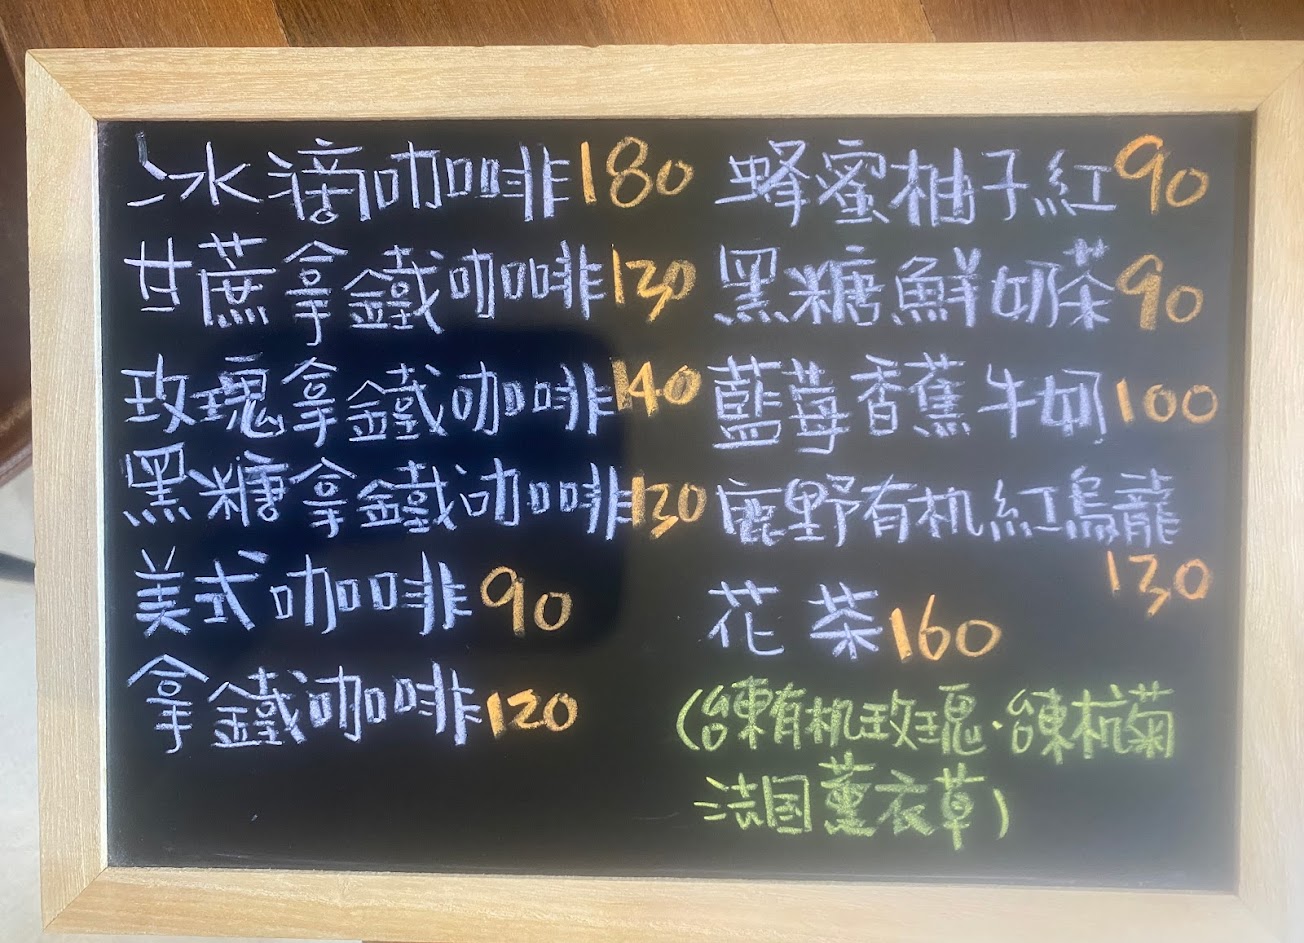 冰滴咖啡180
甘蔗拿鐵咖啡130
玫瑰拿鐵咖啡140
黑糖拿鐵咖啡130
美式咖啡90
拿鐵咖啡120
蜂蜜柚子紅90
黑糖鮮奶茶90
藍莓香蕉牛奶100
鹿野有机紅烏龍
130
花茶160
(台東有机玫瑰·台東杭菊
法国薰衣草)